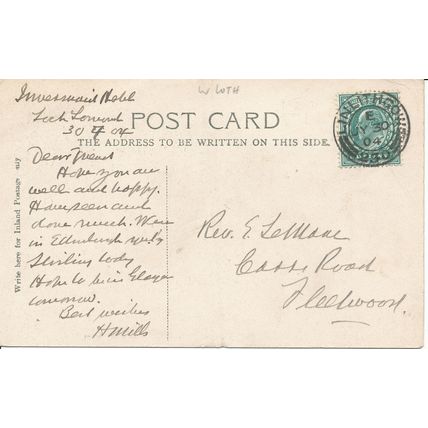 W LOTH
Inversnaid Hotel
Loch Lomond
30 7 04
POST CARD
THE ADDRESS TO BE WRITTEN ON THIS SIDE.
LINLITHGOW
E
JY 30
04
Write here for Inland Postage only
Dear Friend
Hope you are
well and happy.
Have seen and
done much. Were
in Edinburgh
Stirling today
Hope to be in Glasgow
tomorrow.
Best wishes
H Mills
Rev. E. LeMare
Road
Fleetwood.